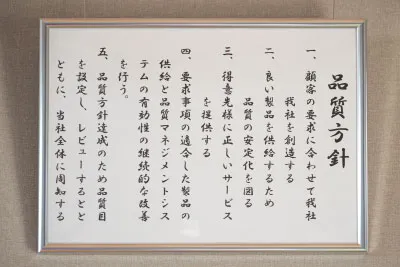 品質方針
一、顧客の要求に合わせて我社
我社を創造する
二、良い製品を供給するため
品質の安定化を図る
三、得意先様に正しいサービス
を提供する
四、要求事項の適合した製品の
供給と品質マネジメントシス
テムの有効性の継続的な改善
を行う。
五、品質方針達成のため品質目
を設定し、レビューするとと
ともに、当社全体に周知する